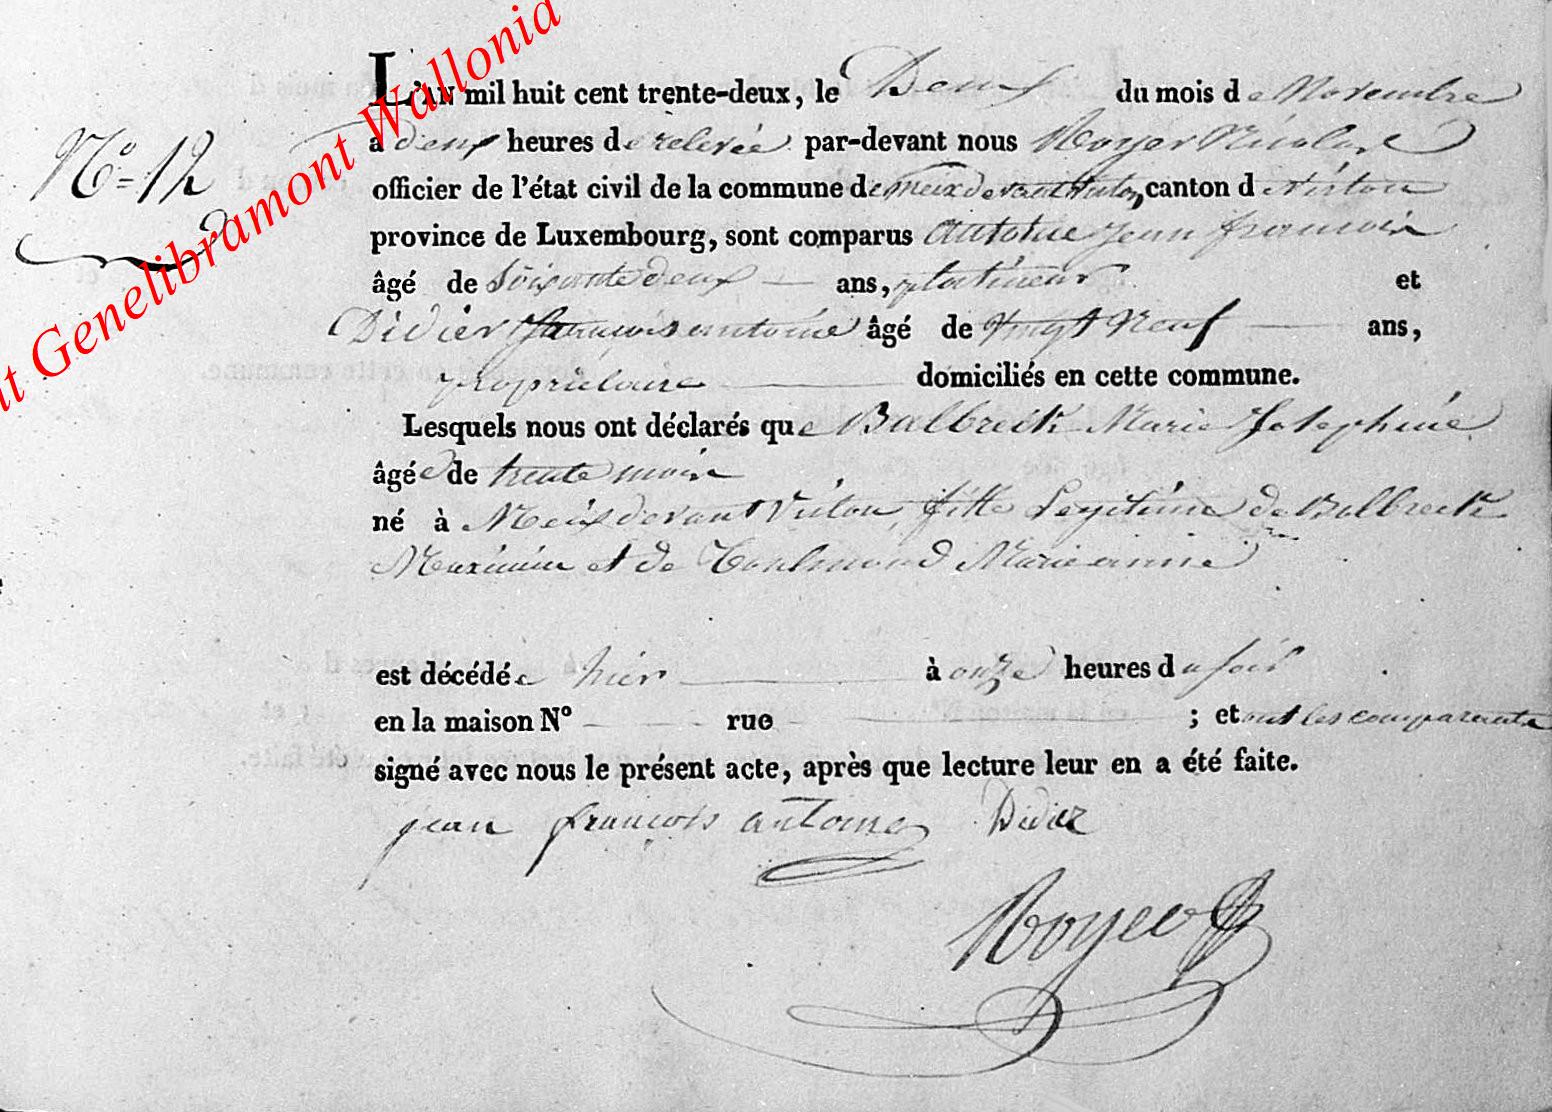 L'AN mil huit cent trente-deux, le Deux du mois de Novembre
N° = 12
à deux heures de relevée par-devant nous Royer Nicolas
officier de l'état civil de la commune de Meix devant Virton, canton de Virton
province de Luxembourg, sont comparus Antoine Jean françois
âgé de Soixante deux ans, platineur et
Didier françois antoine âgé de Vingt Neuf ans,
propriétaire domiciliés en cette commune.
Lesquels nous ont déclarés que Balbreck Marie Josephine
âgée de trente mois
né à Meix devant Virton, fille Legitime de Balbreck
Maximin et de Marie anne
est décédée hier à onze heures du soir
en la maison N° rue ; et ont les comparants
signé avec nous le présent acte, après que lecture leur en a été faite.
jean françois antoine Didier
Royer
Genelibramont Wallonia